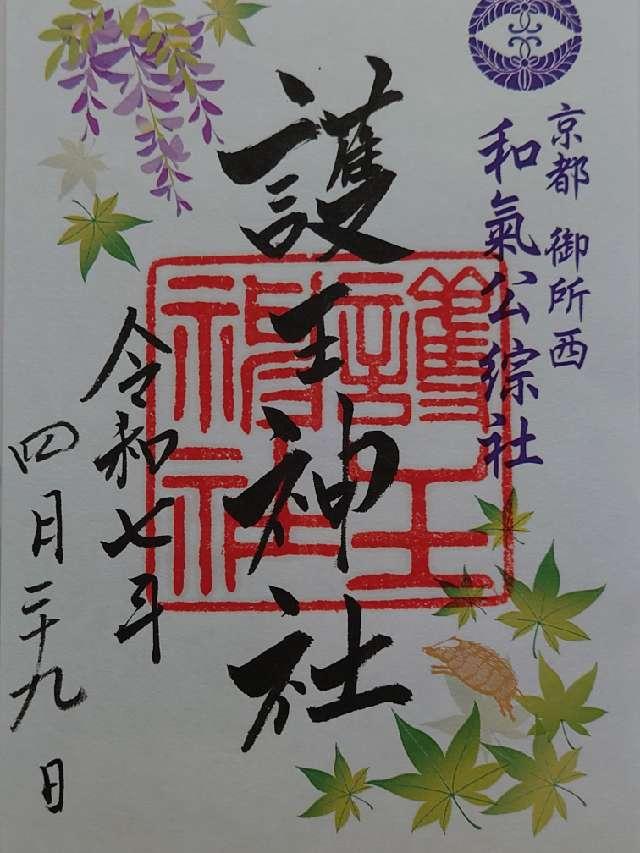 京都 御所西
和氣公綜社
護王神社
護王神社
令和七年
四月二十九日